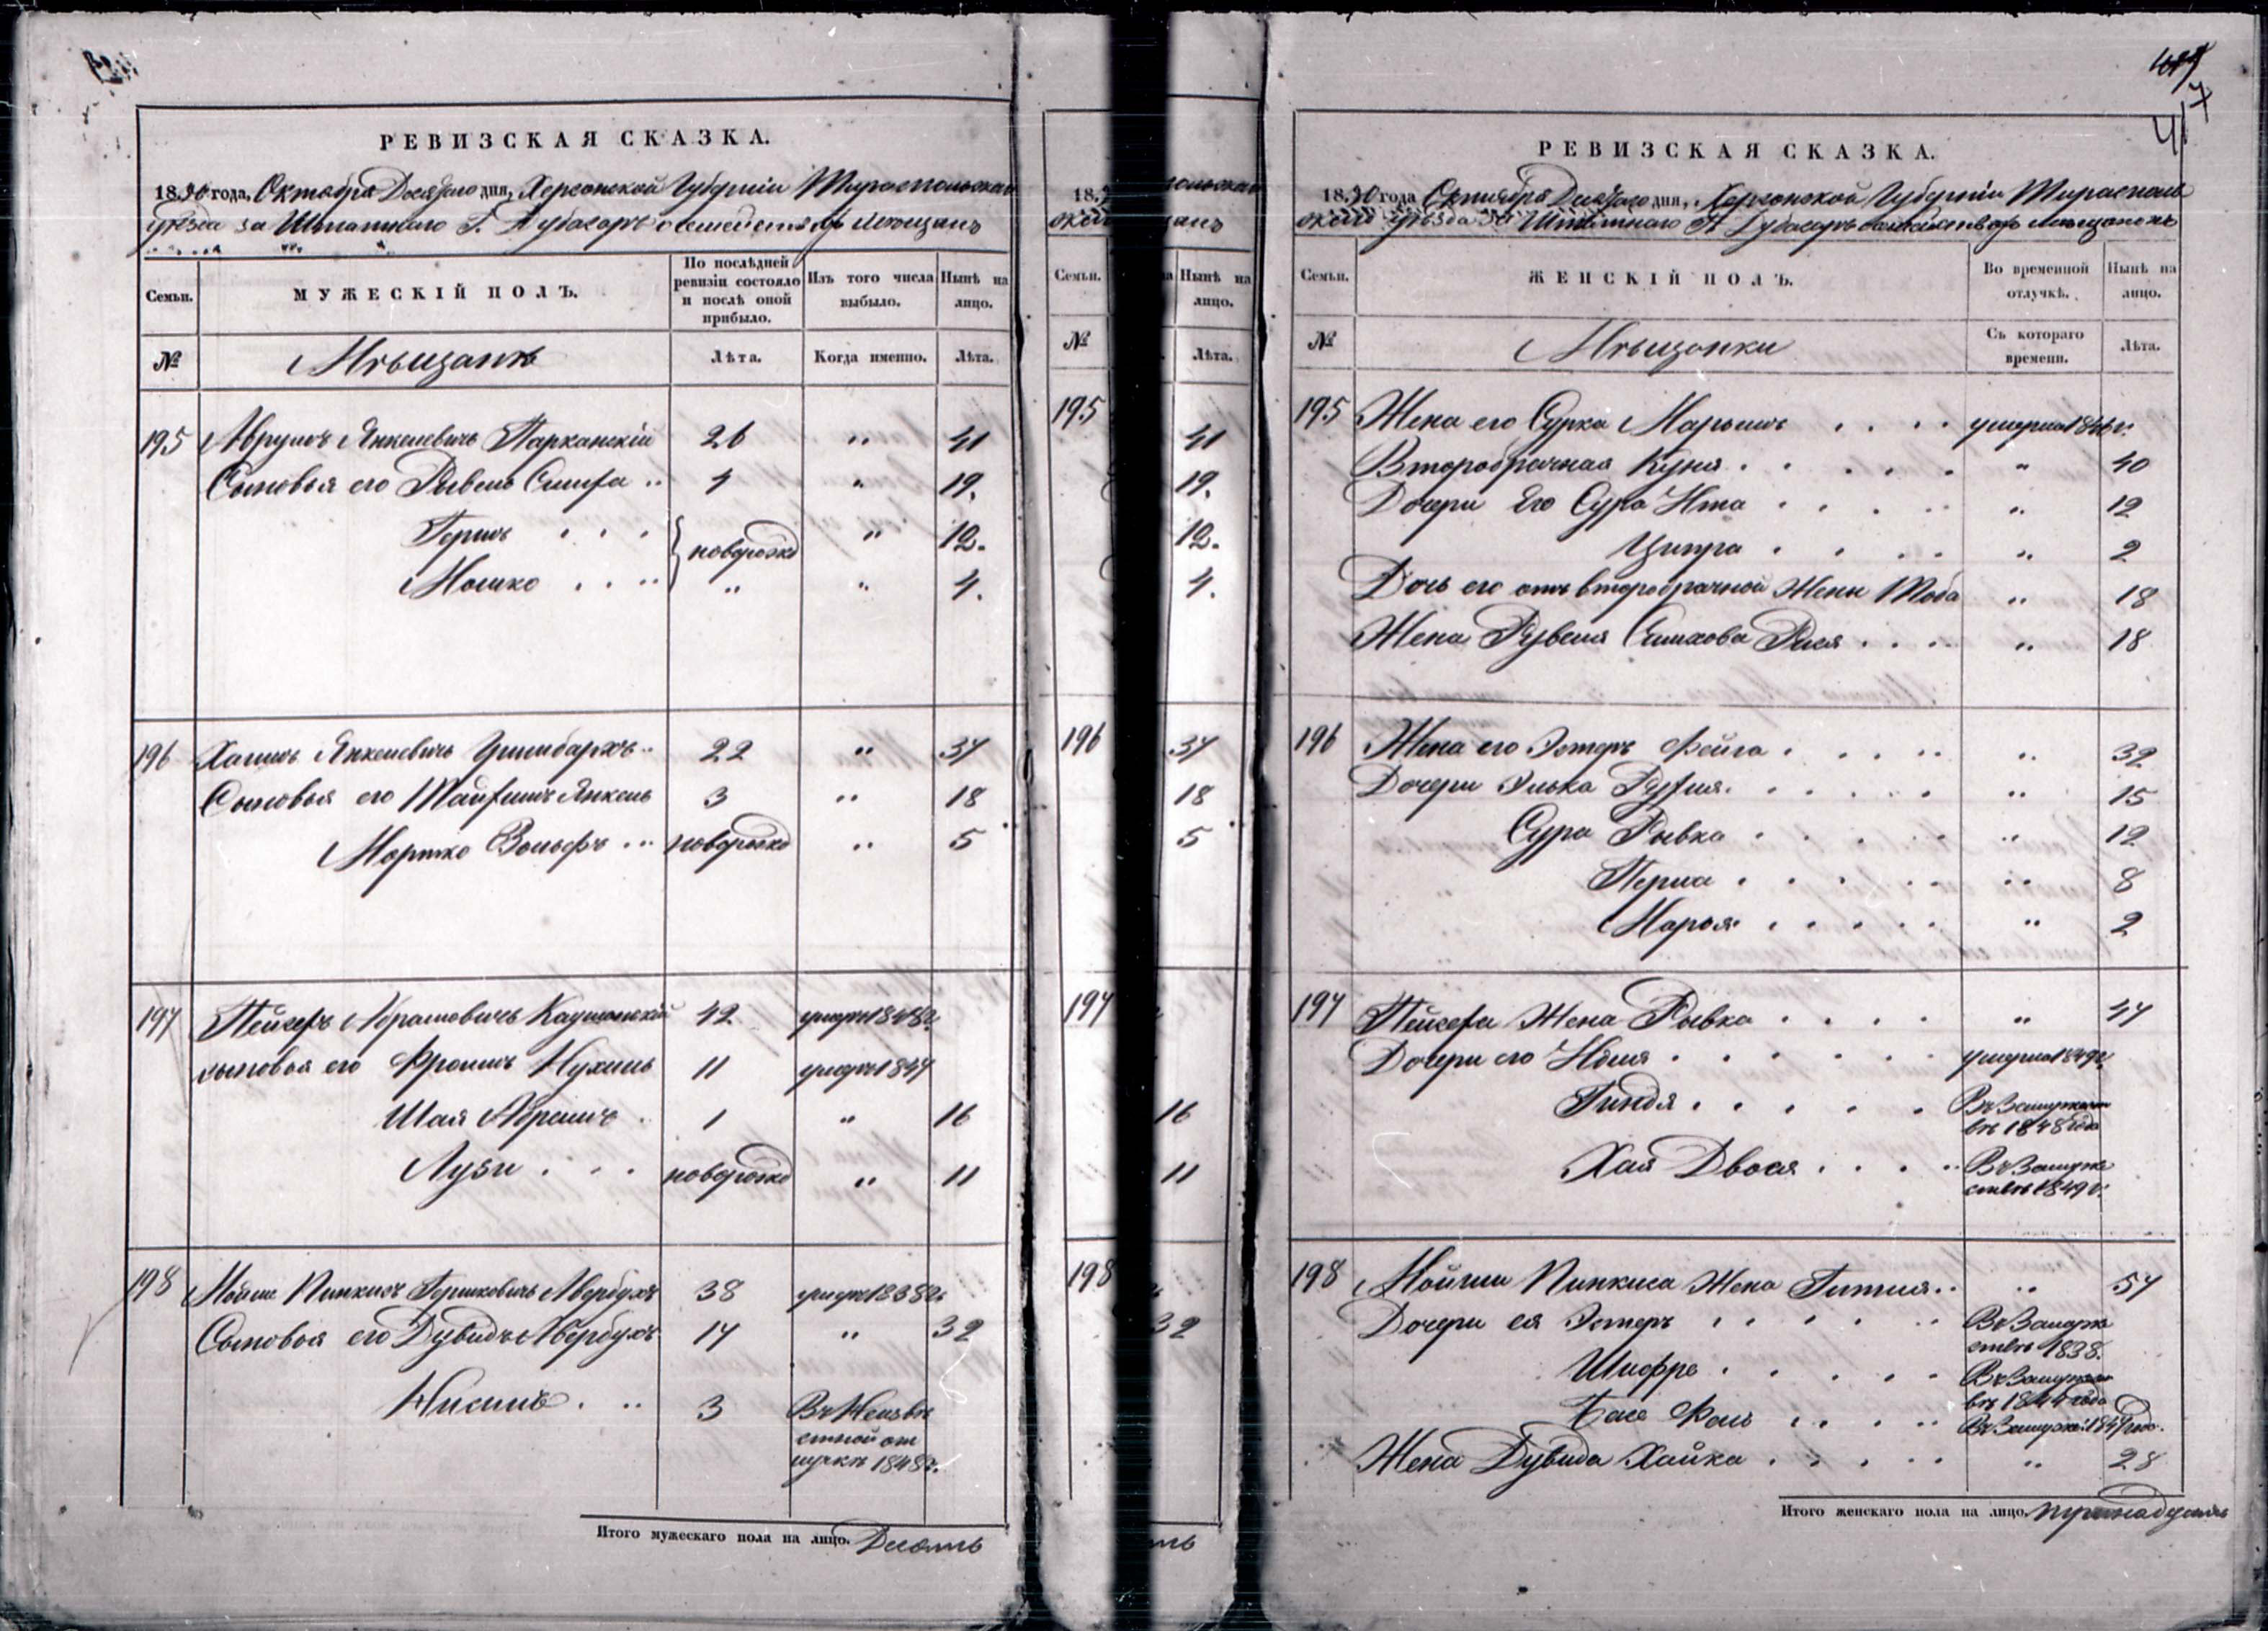 РЕВИЗСКАЯ СКАЗКА.
1850 года, Октября дня, Херсонской Губерніи Тираспольскаго
уѣзда заштатнаго Г. Дубасаръ о мѣщанъ
Семьи.
МУЖЕСКІЙ ПОЛЪ.
По послѣдней ревизіи состояло и послѣ оной прибыло.
Изъ того числа выбыло.
Нынѣ на лицо.
№
Мѣщанъ
Лѣта.
Когда именно.
Лѣта.
195 Аврумъ Янкелевичъ Парканскій 26 " 41
Сыновья его Рывенъ Симха 4 " 19.
Гершъ новорожд " 12.
Мошко " " 4.
196 Хаимъ Янкелевичъ 22 " 37
Сыновья его Янкель 3 " 18
Мортко Вольфъ новорожд " 5
197 Пейсеръ Абрамовичъ Каушанскій 42 умеръ 1848г.
сыновья его Фроимъ Нухимъ 11 умеръ 1847
Шая Абрамъ 1 " 16
Лузи новорожд " 11
198 Мойше Пинкасъ Гершковичъ Авербухъ 38 умеръ 1838г.
Сыновья его Дувидъ Авербухъ 17 " 32
Нисинъ 3 Въ Неизвѣ
стной от
лучкѣ 1848г.
Итого мужескаго пола на лицо. Десять
18
Семьи.
Нынѣ на лицо.
№
Лѣта.
195
41
19.
12.
4.
196
37
18
5
197
16
11
198
32
417
РЕВИЗСКАЯ СКАЗКА.
1850 года Октября дня, Херсонской Губерніи Тирасполь
скаго уѣзда Заштатнаго Г. Дубасаръ мѣщанокъ
Семьи.
ЖЕНСКІЙ ПОЛЪ.
Во временной отлучкѣ.
Нынѣ на лицо.
№
Мѣщанки
Съ котораго времени.
Лѣта.
195 Жена его Сурка Марьимъ умерла 1846г.
Второбрачная Куня " 40
Дочери Его Сура Ита " 12
Ципра " 2
Дочь его отъ второбрачной Жены Тоба " 18
Жена Рувеля Симхова Рася " 18
196 Жена его Эстеръ Фейга " 32
Дочери Элька Рухля " 15
Сура Рывка " 12
Перла " 8
Марья " 2
197 Пейсера Жена Рывка " 47
Дочери его умерла 1849г.
Гиндя Въ Замужест
вѣ 1848 года
Хая Двося Въ Замуже
ствѣ 1849г.
198 Мойши Пинкиса Жена Гитля " 57
Дочери ея Эстеръ Въ Замуже
ствѣ 1838.
Шифра Въ Замужест
вѣ 1844 года
Бася Въ Замуже: 1847 год.
Жена Дувида Хайка " 28
Итого женскаго пола на лицо. тринадцать